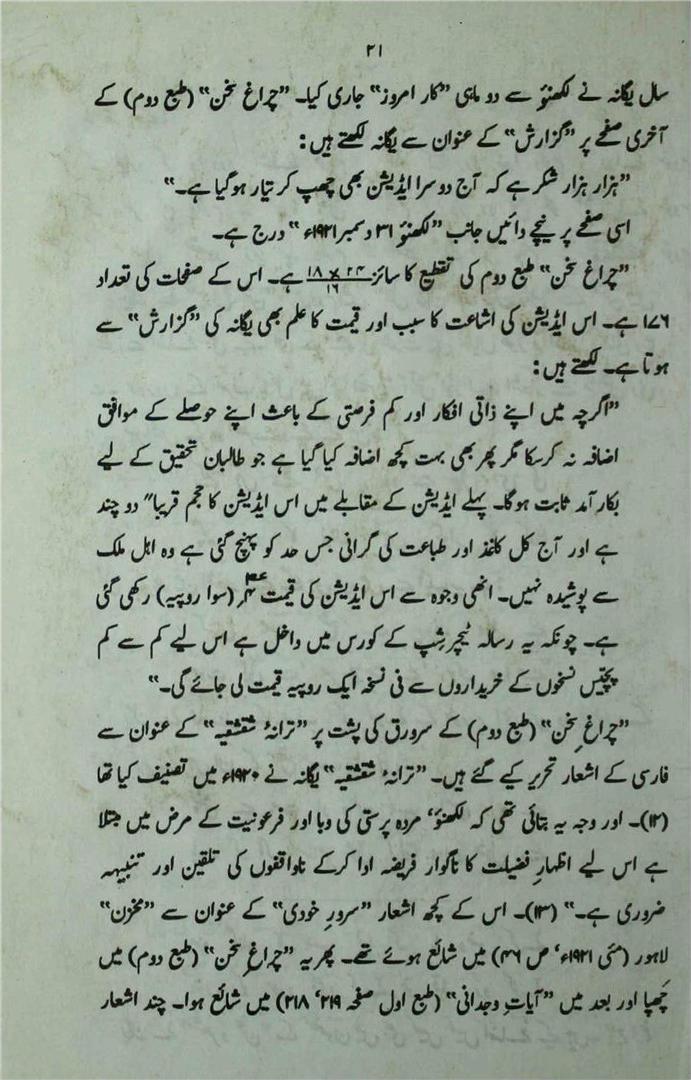 ۲۱
سال یگانہ نے لکھنؤ سے دو ماہی "کار امروز" جاری کیا۔ "چراغِ سخن" (طبع دوم) کے
آخری صفحے پر "گزارش" کے عنوان سے یگانہ لکھتے ہیں :
"ہزار ہزار شکر ہے کہ آج دوسرا ایڈیشن بھی چھپ کر تیار ہوگیا ہے۔"
اسی صفحے پر نیچے دائیں جانب "لکھنؤ ۳۱ دسمبر ۱۹۲۱ء" درج ہے۔
"چراغِ سخن" طبع دوم کی تقطیع کا سائز ۲۴ × ۱۸ / ۱۶ ہے۔ اس کے صفحات کی تعداد
۱۷۶ ہے۔ اس ایڈیشن کی اشاعت کا سبب اور قیمت کا علم بھی یگانہ کی "گزارش" سے
ہوتا ہے۔ لکھتے ہیں :
"اگرچہ میں اپنے ذاتی افکار اور کم فرصتی کے باعث اپنے حوصلے کے موافق
اضافہ نہ کرسکا مگر پھر بھی بہت کچھ اضافہ کیا گیا ہے جو طالبان تحقیق کے لیے
بکار آمد ثابت ہوگا۔ پہلے ایڈیشن کے مقابلے میں اس ایڈیشن کا حجم قریباً دو چند
ہے اور آج کل کاغذ اور طباعت کی گرانی جس حد کو پہنچ گئی ہے وہ اہل ملک
سے پوشیدہ نہیں۔ انھی وجوہ سے اس ایڈیشن کی قیمت (سوا روپیہ) رکھی گئی
ہے۔ چونکہ یہ رسالہ ٹیچر شپ کے کورس میں داخل ہے اس لیے کم سے کم
پچیّس نسخوں کے خریداروں سے فی نسخہ ایک روپیہ قیمت لی جائے گی۔"
"چراغِ سخن" (طبع دوم) کے سرورق کی پشت پر "ترانۂ شقشقیہ" کے عنوان سے
فارسی کے اشعار تحریر کیے گئے ہیں۔ "ترانۂ شقشقیہ" یگانہ نے ۱۹۲۰ء میں تصنیف کیا تھا
(۱۲)۔ اور وجہ یہ بتائی تھی کہ لکھنؤ، مردہ پرستی کی وبا اور فرعونیت کے مرض میں مبتلا
ہے اس لیے اظہارِ فضیلت کا ناگوار فریضہ ادا کرکے ناواقفوں کی تلقین اور تنبیہہ
ضروری ہے۔" (۱۳)۔ اس کے کچھ اشعار "سرورِ خودی" کے عنوان سے "مخزن"
لاہور (مئی ۱۹۲۱ء، ص ۴۶) میں شائع ہوئے تھے۔ پھر یہ "چراغِ سخن" (طبع دوم) میں
چَھپا اور بعد میں "آیاتِ وجدانی" (طبع اول صفحہ ۲۱۹، ۲۱۸) میں شائع ہوا۔ چند اشعار